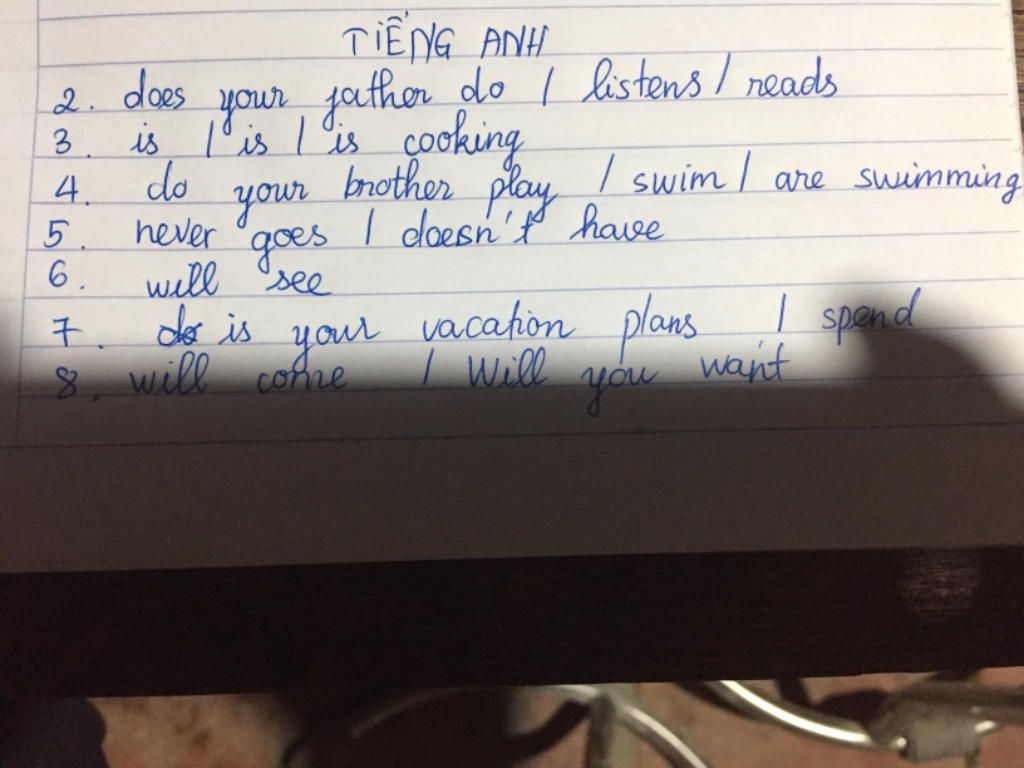 TIẾNG ANH
2. does your father do / listens / reads
3. is / is / is cooking
4. do your brother play / swim / are swimming
5. never goes / doesn't have
6. will see
7. do is your vacation plans / spend
8. will come / Will you want